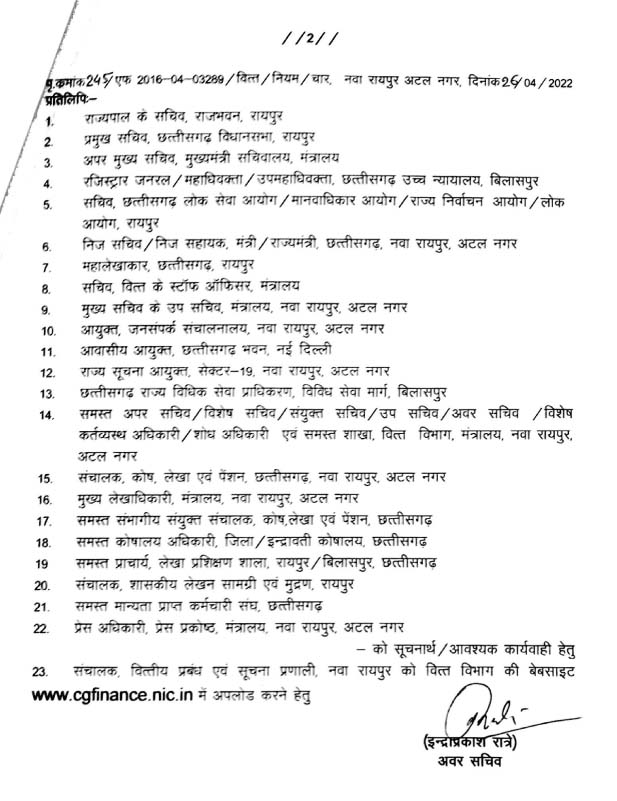 //2//
पृ.क्रमांक 245/एफ 2016-04-03289/वित्त/नियम/चार, नवा रायपुर अटल नगर, दिनांक 26/04/2022
प्रतिलिपिः–
1. राज्यपाल के सचिव, राजभवन, रायपुर
2. प्रमुख सचिव, छत्तीसगढ़ विधानसभा, रायपुर
3. अपर मुख्य सचिव, मुख्यमंत्री सचिवालय, मंत्रालय
4. रजिस्ट्रार जनरल/महाधिवक्ता/उपमहाधिवक्ता, छत्तीसगढ़ उच्च न्यायालय, बिलासपुर
5. सचिव, छत्तीसगढ़ लोक सेवा आयोग/मानवाधिकार आयोग/राज्य निर्वाचन आयोग/लोक
आयोग, रायपुर
6. निज सचिव/निज सहायक, मंत्री/राज्यमंत्री, छत्तीसगढ़, नवा रायपुर, अटल नगर
7. महालेखाकार, छत्तीसगढ़, रायपुर
8. सचिव, वित्त के स्टॉफ ऑफिसर, मंत्रालय
9. मुख्य सचिव के उप सचिव, मंत्रालय, नवा रायपुर, अटल नगर
10. आयुक्त, जनसंपर्क संचालनालय, नवा रायपुर, अटल नगर
11. आवासीय आयुक्त, छत्तीसगढ़ भवन, नई दिल्ली
12. राज्य सूचना आयुक्त, सेक्टर-19, नवा रायपुर, अटल नगर
13. छत्तीसगढ़ राज्य विधिक सेवा प्राधिकरण, विविध सेवा मार्ग, बिलासपुर
14. समस्त अपर सचिव/विशेष सचिव/संयुक्त सचिव/उप सचिव/अवर सचिव /विशेष
कर्तव्यस्थ अधिकारी/शोध अधिकारी एवं समस्त शाखा, वित्त विभाग, मंत्रालय, नवा रायपुर,
अटल नगर
15. संचालक, कोष, लेखा एवं पेंशन, छत्तीसगढ़, नवा रायपुर, अटल नगर
16. मुख्य लेखाधिकारी, मंत्रालय, नवा रायपुर, अटल नगर
17. समस्त संभागीय संयुक्त संचालक, कोष,लेखा एवं पेंशन, छत्तीसगढ़
18. समस्त कोषालय अधिकारी, जिला/इन्द्रावती कोषालय, छत्तीसगढ़
19 समस्त प्राचार्य, लेखा प्रशिक्षण शाला, रायपुर/बिलासपुर, छत्तीसगढ़
20. संचालक, शासकीय लेखन सामग्री एवं मुद्रण, रायपुर
21. समस्त मान्यता प्राप्त कर्मचारी संघ, छत्तीसगढ़
22. प्रेस अधिकारी, प्रेस प्रकोष्ठ, मंत्रालय, नवा रायपुर, अटल नगर
– को सूचनार्थ/आवश्यक कार्यवाही हेतु
23. संचालक, वित्तीय प्रबंध एवं सूचना प्रणाली, नवा रायपुर को वित्त विभाग की बेबसाइट
www.cgfinance.nic.in में अपलोड करने हेतु
(इन्द्राप्रकाश रात्रे)
अवर सचिव